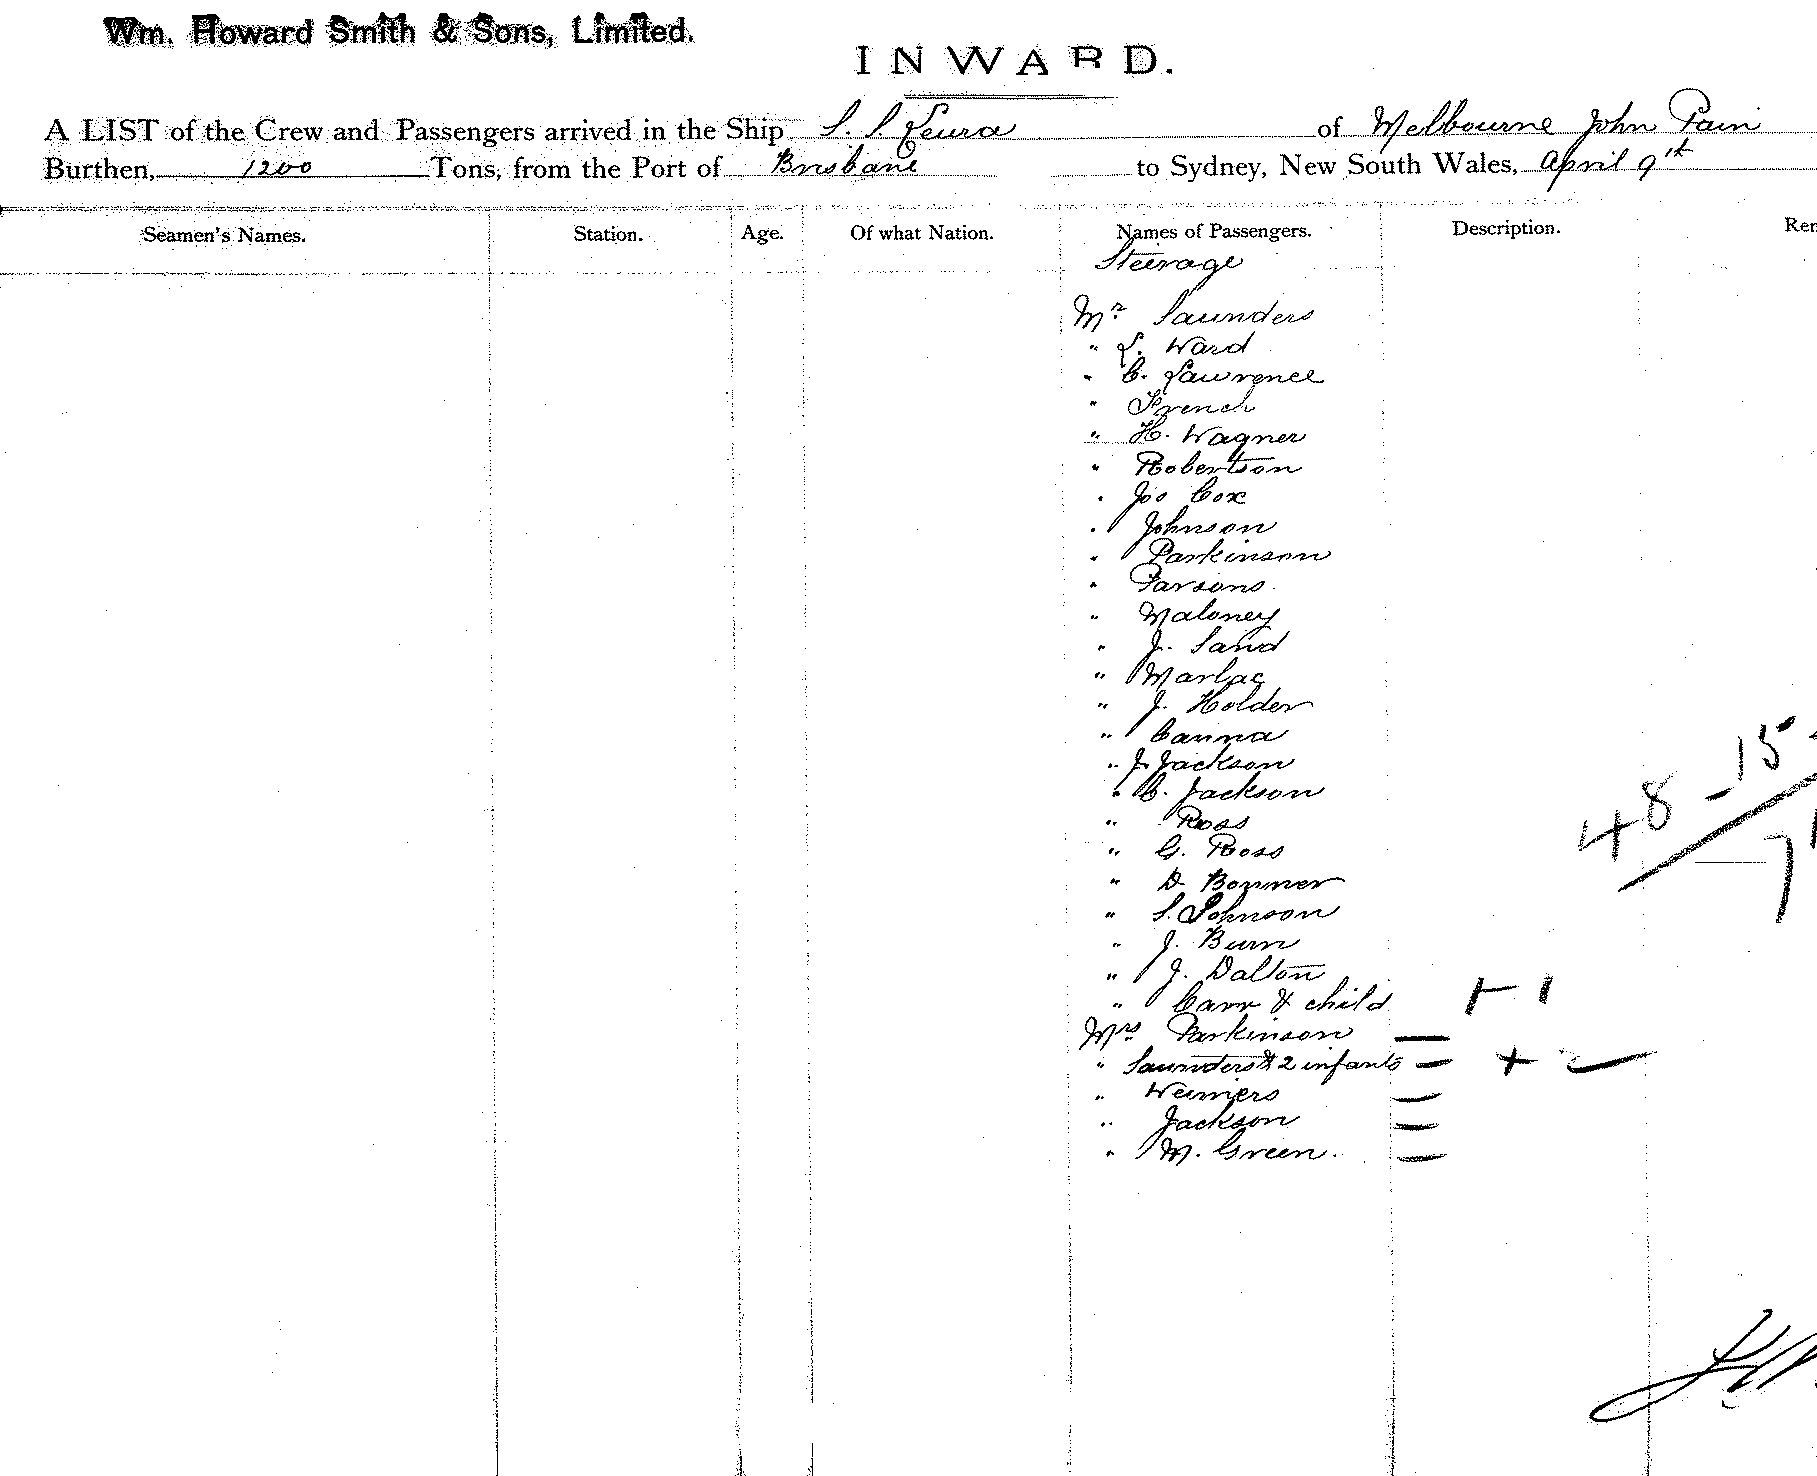 Wm. Howard Smith & Sons, Limited.
INWARD.
A LIST of the Crew and Passengers arrived in the Ship S. S Leura of Melbourne John Pain
Burthen, 1200 Tons, from the Port of Brisbane to Sydney, New South Wales, April 9th
Seamen's Names. Station. Age. Of what Nation. Names of Passengers. Description. Rem
Steerage
Mr Saunders
" L. Ward
" C. Lawrence
" French
" H. Wagner
" Robertson
" Jos Cox
" Johnson
" Parkinson
" Parsons
" Maloney
" J. Sand
"
" J. Holder
" Canna
" J. Jackson
" C. Jackson
" Ross
" G. Ross
" D Bonner
" S. Johnson
" J. Burn
" J. Dalton
" Carr & child + 1
Mrs Parkinson —
" Saunders & 2 infants — + 2
" Weimers —
" Jackson —
" M. Green. —
48 - 15
71